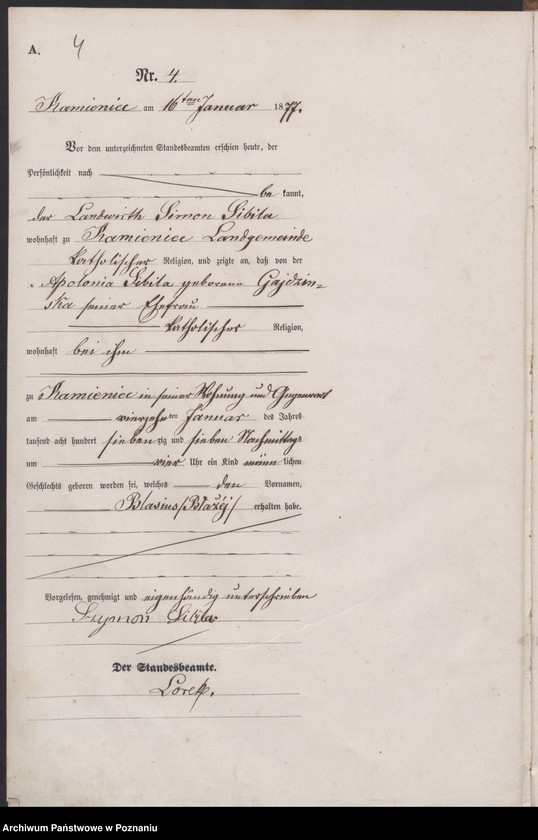 A. 4
Nr. 4.
Kamienice am 16ten Januar 1877.
Vor dem unterzeichneten Standesbeamten erschien heute, der
Persönlichkeit nach
be kannt,
der Landwirth Simon Sibila
wohnhaft zu Kamienice Landgemeinde
katholischer Religion, und zeigte an, daß von der
Apolonia Sibila geborene Gajdzin=
ska seiner Ehefrau
katholischer Religion,
wohnhaft bei ihm
zu Kamienice in seiner Wohnung und Gegenwart
am vierzehn ten Januar des Jahres
tausend acht hundert siebenzig und sieben Nachmittags
um vier Uhr ein Kind männ lichen
Geschlechts geboren worden sei, welches den Vornamen,
Blasius /Błażéj/ erhalten habe.
Vorgelesen, genehmigt und eigenhändig unterschrieben
Szymon Sibila
Der Standesbeamte.
Lorek.
Archiwum Państwowe w Poznaniu